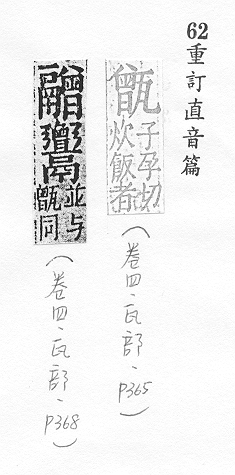 62重訂直音篇
甑子孕切炊飯者
(卷四、瓦部、P365)
並与甑同
(卷四、瓦部、P368)